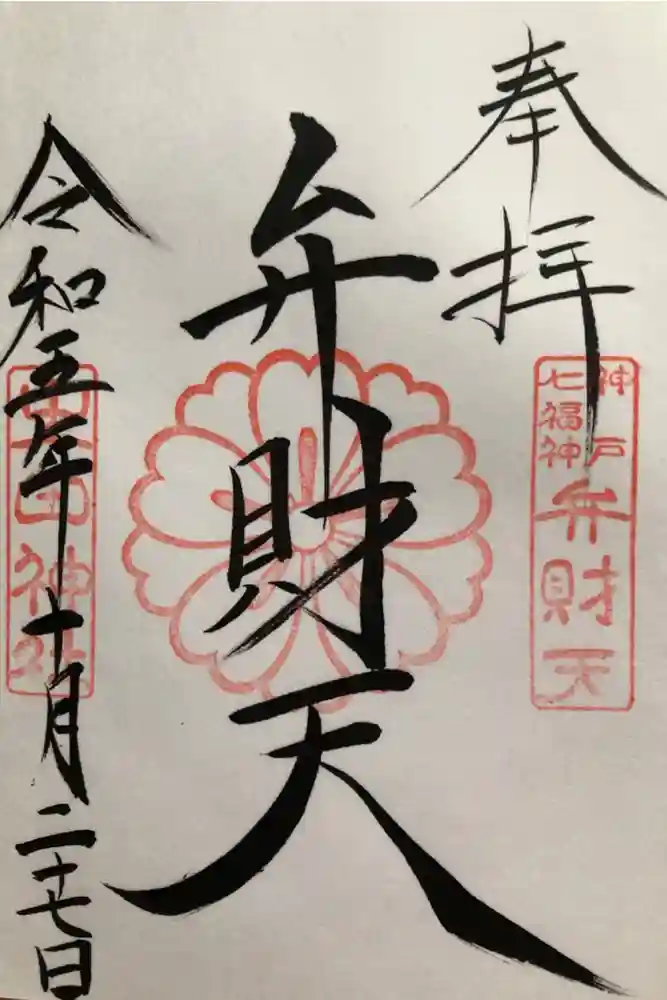 奉拝
神戸
七福神
弁財天
弁財天
令和五年十月二十七日
生田神社